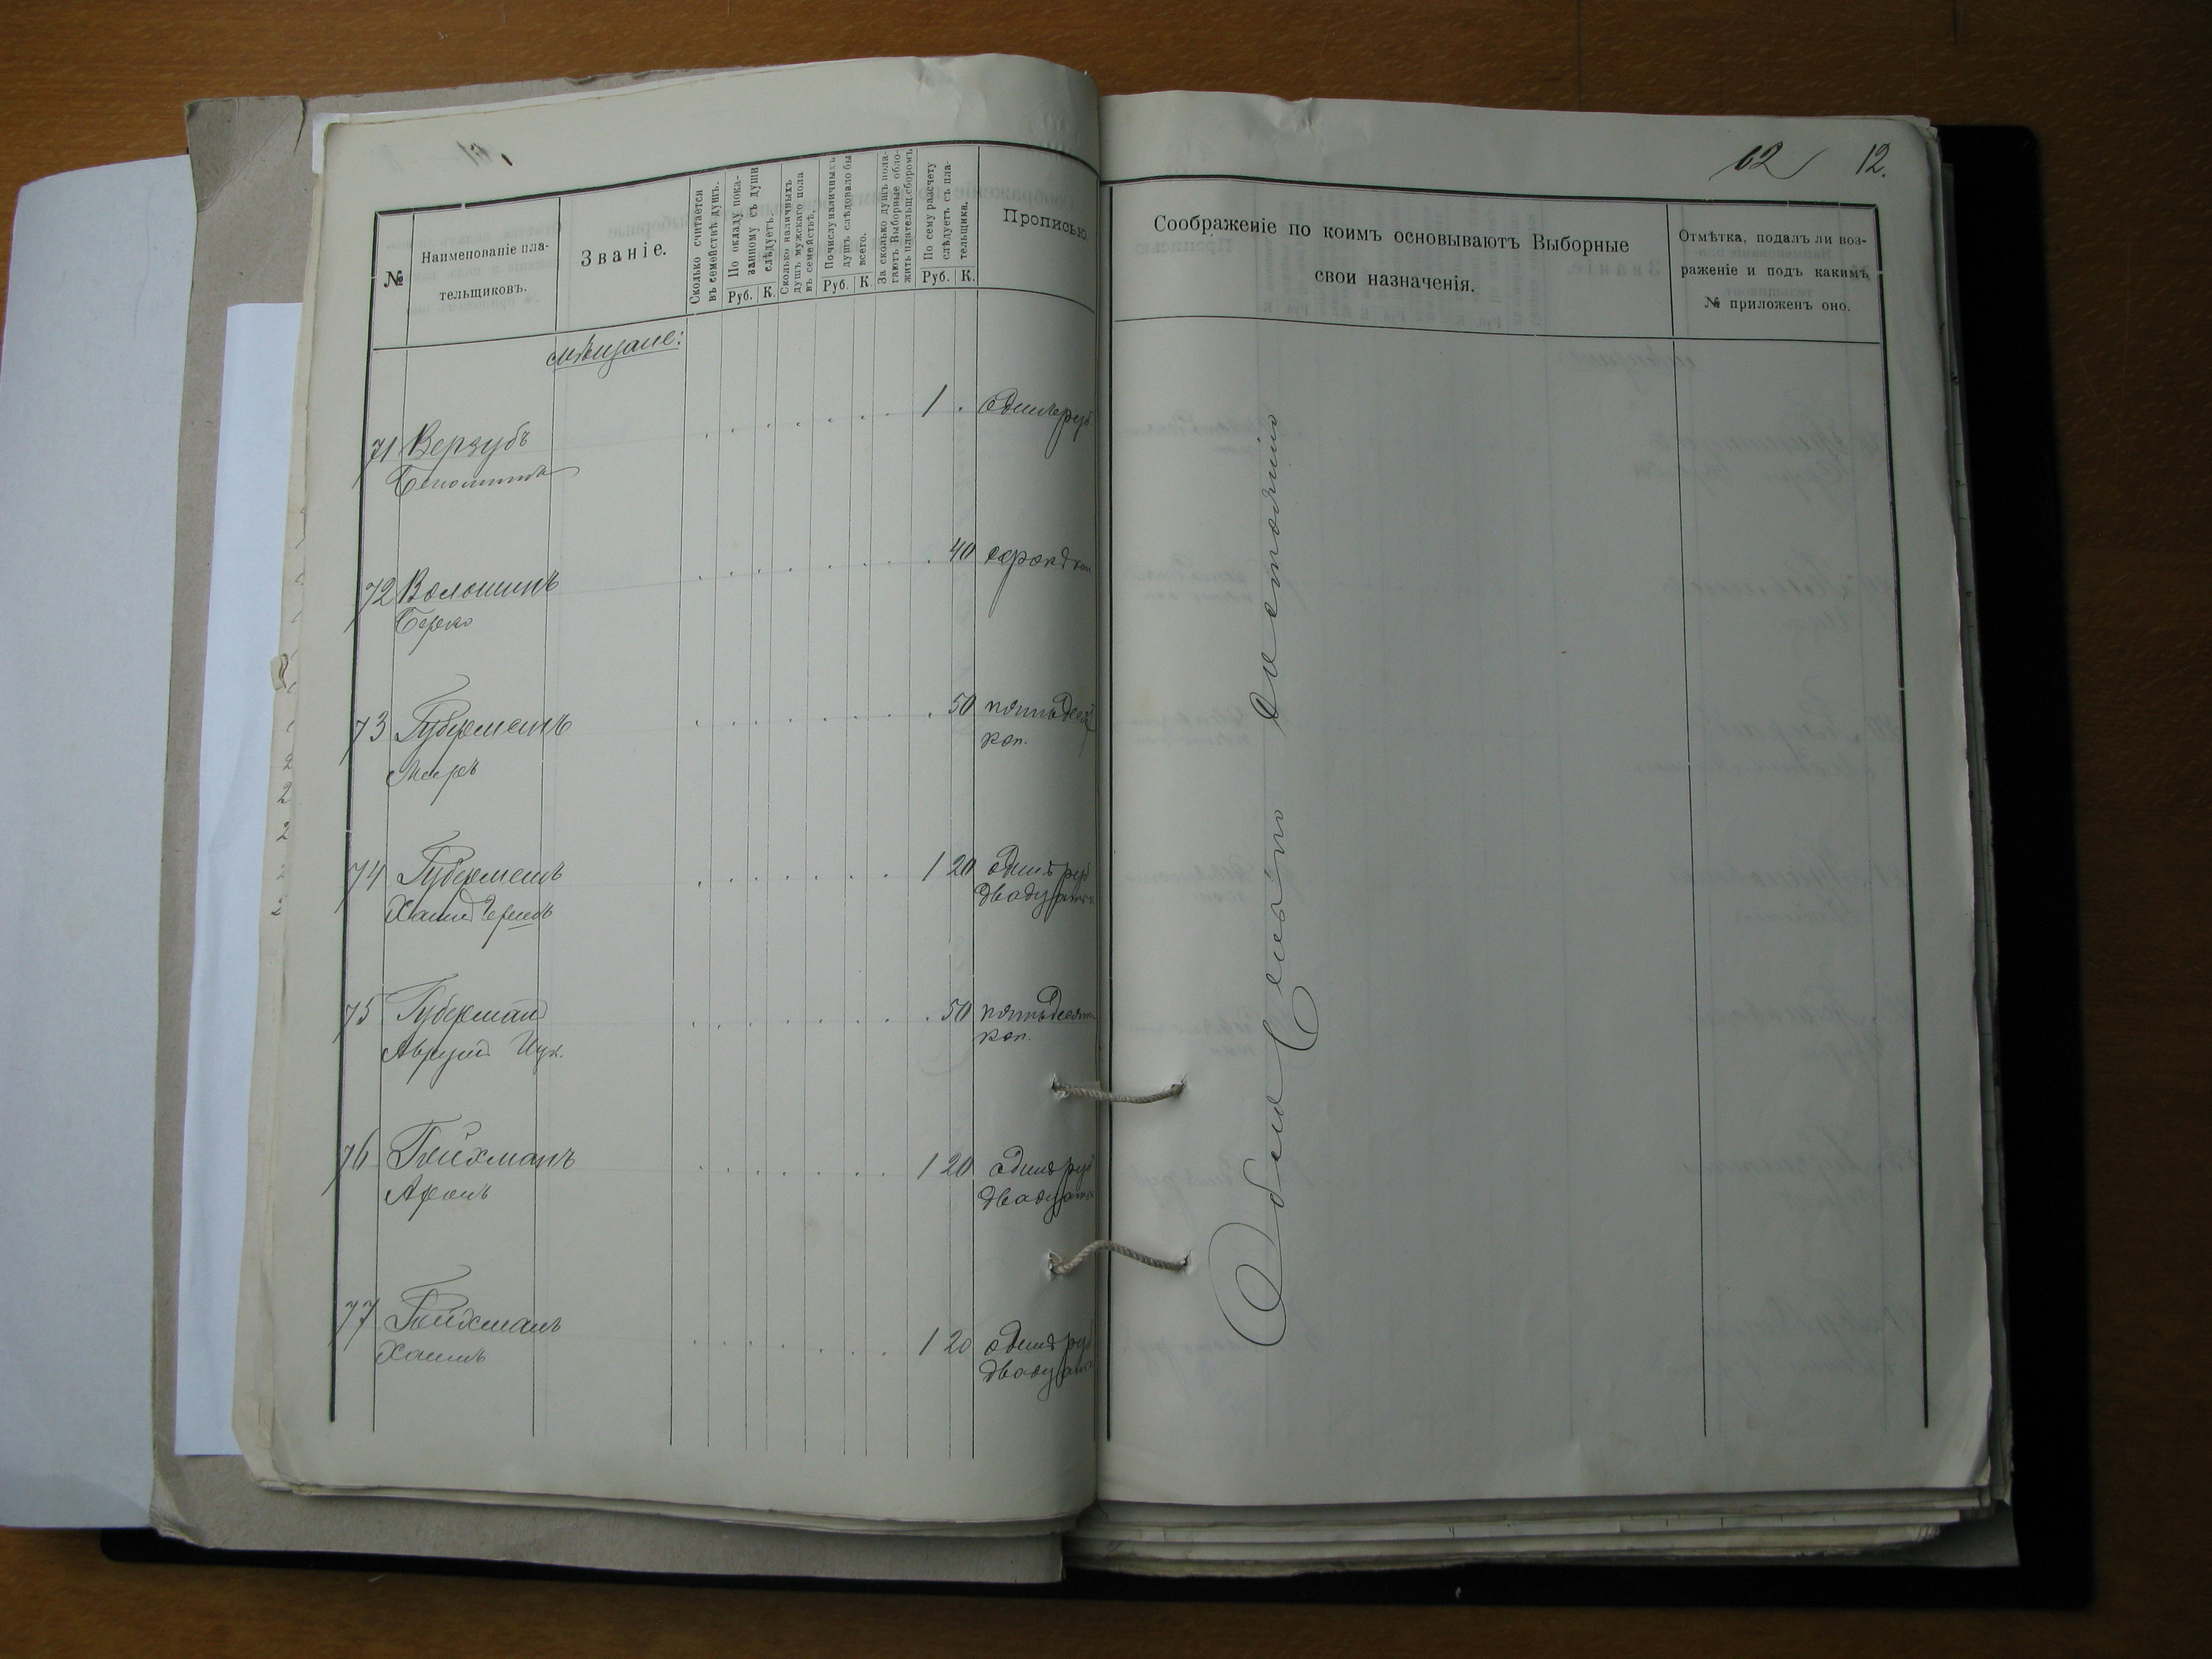 62 12.
№
Наименованіе пла-
тельщиковъ.
Званіе.
Сколько считается
въ семействѣ душъ.
По окладу пока-
занному съ души
слѣдуетъ.
Руб. К.
Сколько наличныхъ
душъ мужскаго пола
въ семействѣ.
По числу наличныхъ
душъ слѣдовало бы
всего.
Руб. К.
За сколько душъ пола-
гаютъ Выборные обло-
жить плательщ. сборомъ
По сему разсчету
слѣдуетъ съ пла-
тельщика.
Руб. К.
Прописью.
Соображеніе по коимъ основываютъ Выборные
свои назначенія.
Отмѣтка, подалъ ли воз-
раженіе и подъ какимъ
№ приложенъ оно.
мѣщане:
71 Верзубъ 1 . одинъ руб.
72 Волошинъ . 40 сорокъ коп.
Берко
73 Губерманъ . 50 пятьдесят
Меръ коп.
74 Губерманъ 1 20 одинъ руб
Хаимъ двадцать к
75 Губерманъ . 50 пятьдесят
Аврумъ Ицк. коп.
76 Гойхманъ 1 20 одинъ руб
Аронъ двадцать к
77 Гойхманъ 1 20 одинъ руб
Хаимъ двадцать к
состоянію